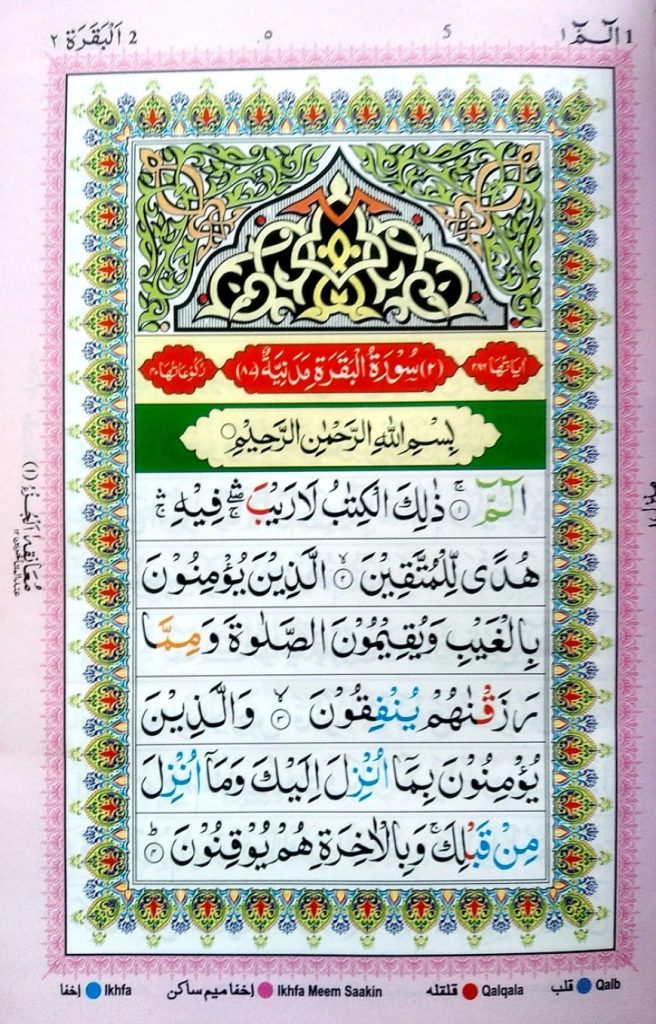 1 الٓـمّٓ ١ 5 ٥ 2 اَلْبَقَرَة ٢
اٰیَاتُهَا ٢٨٦ (٢) سُوْرَةُ الْبَقَرَةِ مَدَنِیَّةٌ (٨٧) رُكُوْعَاتُهَا ٤٠
بِسْمِ اللّٰهِ الرَّحْمٰنِ الرَّحِیْمِ
الٓـمّٓ ۚ ﴿١﴾ ذٰلِكَ الْكِتٰبُ لَا رَیْبَ ۛۖ فِیْهِ ۛ
هُدًی لِّلْمُتَّقِیْنَ ۙ ﴿٢﴾ الَّذِیْنَ یُؤْمِنُوْنَ
بِالْغَیْبِ وَیُقِیْمُوْنَ الصَّلٰوةَ وَمِمَّا
رَزَقْنٰهُمْ یُنْفِقُوْنَ ۙ ﴿٣﴾ وَالَّذِیْنَ
یُؤْمِنُوْنَ بِمَاۤ اُنْزِلَ اِلَیْكَ وَمَاۤ اُنْزِلَ
مِنْ قَبْلِكَ ۚ وَبِالْاٰخِرَةِ هُمْ یُوْقِنُوْنَ ؕ ﴿٤﴾
مُعَانَقَه (١)
إخفا Ikhfa إخفا ميم ساكن Ikhfa Meem Saakin قلقله Qalqala قلب Qalb